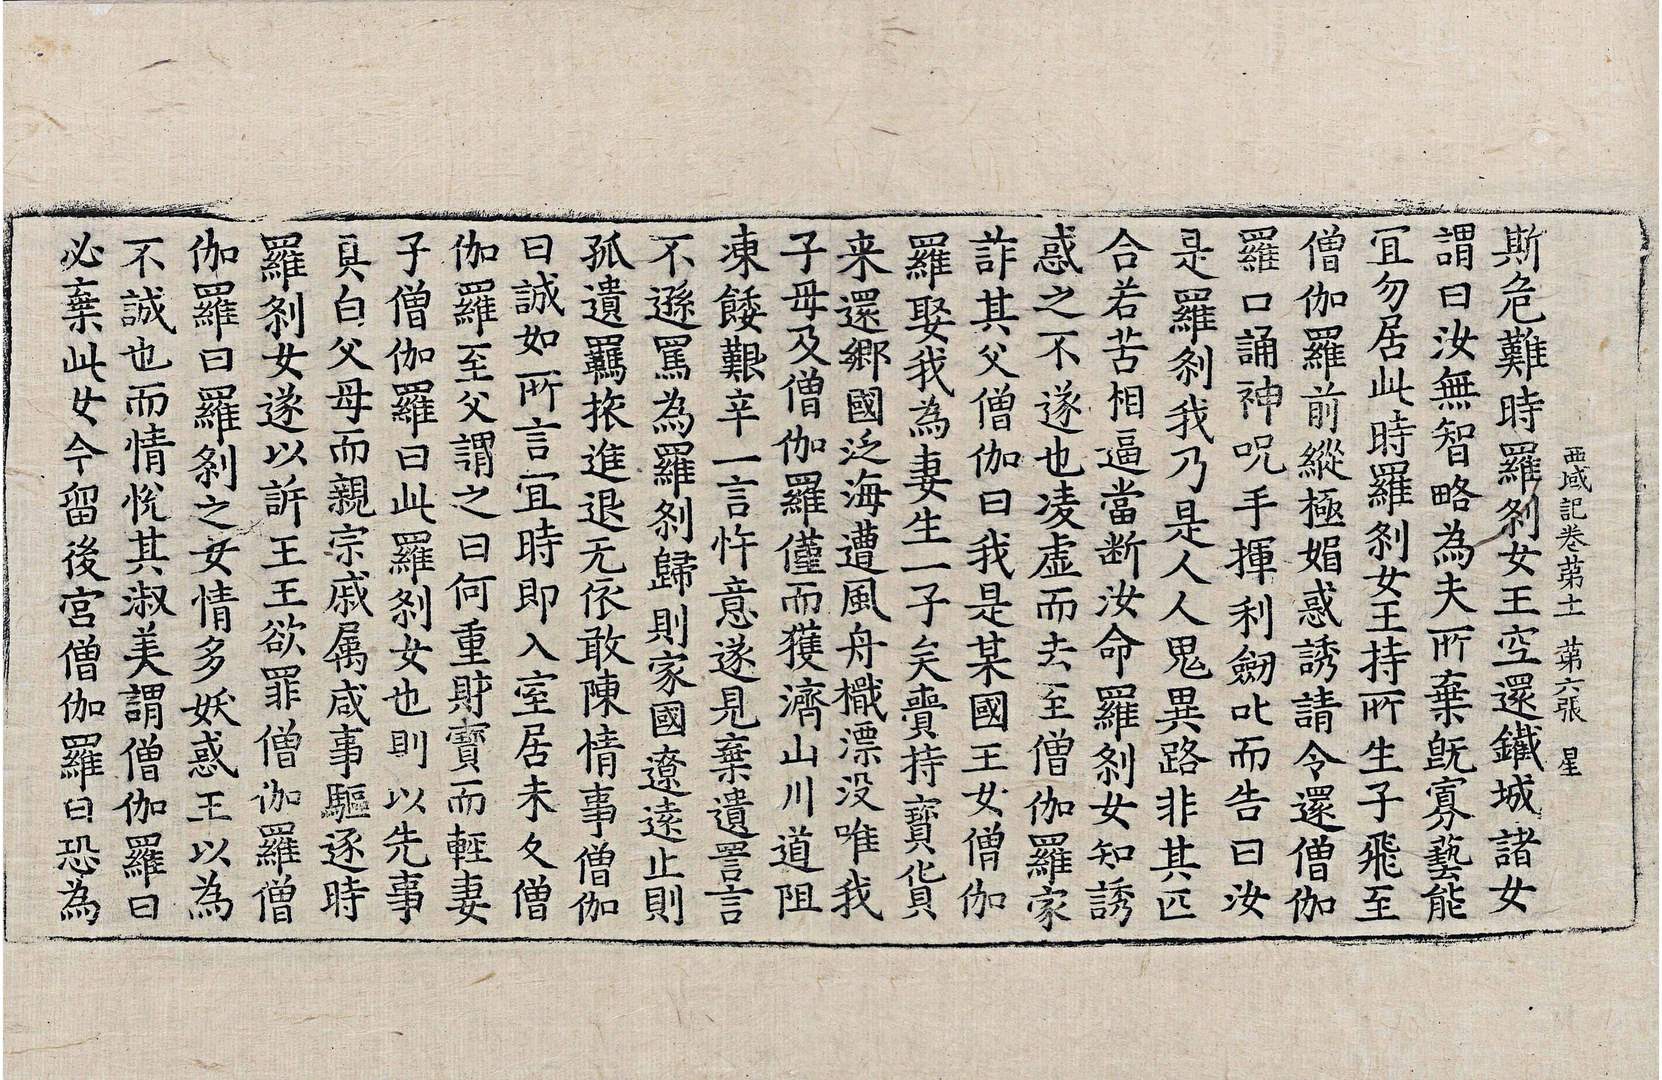 西域記卷苐十一 苐六張 星
斯危難時羅刹女王空還鐵城諸女
謂曰汝無智略為夫所棄旣寡藝能
宜勿居此時羅刹女王持所生子飛至
僧伽羅前縱極媚惑誘請令還僧伽
羅口誦神呪手揮利劒叱而告曰汝
是羅刹我乃是人人鬼異路非其匹
合若苦相逼當断汝命羅刹女知誘
惑之不遂也凌虛而去至僧伽羅家
詐其父僧伽曰我是某國王女僧伽
羅娶我為妻生一子矣賷持寶貨
来還鄉國泛海遭風舟檝漂没唯我
子母及僧伽羅僅而獲濟山川道阻
凍餧艱辛一言忤意遂見棄遺詈言
不遜罵為羅刹歸則家國遼遠止則
孤遺羈旅進退无依敢陳情事僧伽
曰誠如所言宜時即入室居未久僧
伽羅至父謂之曰何重財寶而輕妻
子僧伽羅曰此羅刹女也則以先事
具白父母而親宗戚属咸事驅逐時
羅刹女遂以訴王王欲罪僧伽羅僧
伽羅曰羅刹之女情多妖惑王以為
不誠也而情悅其淑美謂僧伽羅曰
必棄此女今留後宮僧伽羅曰恐為